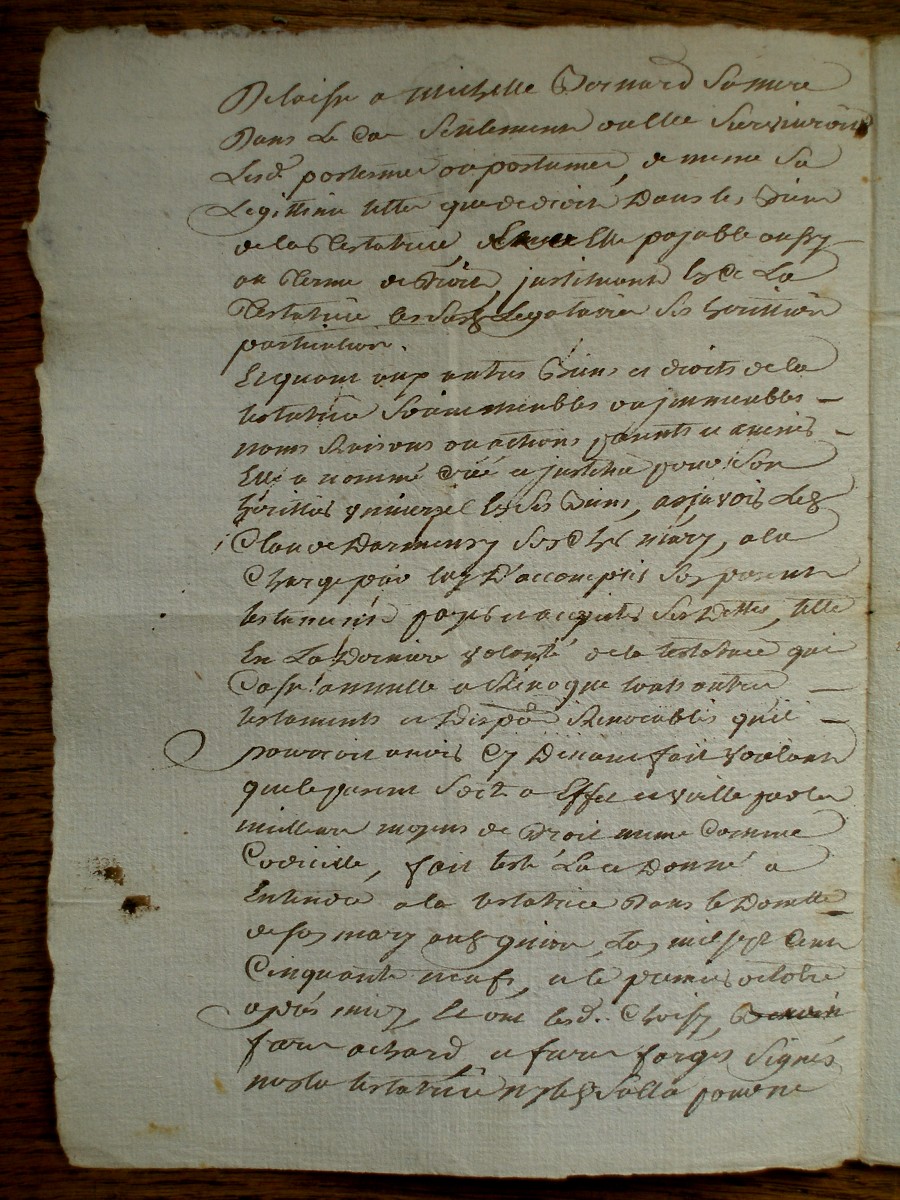 Delaisse a michelle Bernard sa mere
Dans Le Cas Seulement ou elle Surviuroit
Lesd. posteme ou postumes, de meme Sa
Legittime telle que de droit Dans les Biens
de la Testatrice, Elle payable aussy
au Terme de Droit, justituant La
Testatrice les Sus Legataires Ses heritiers
particuliers.
Et quant aux autres Biens et droits de la
testatrice Soit meubles ou jmmeubles
noms Raisons ou actions presents et auenir
Elle a nommé Créé et justitué pour Son
héritier vniuersel Ses Biens, asçavoir Led
Claude Darmensy Son Cher mary, a la
Charge par luy D'accomplir Son present
testament, payer et acquitter Ses Dettes, telle
Est La Derniere volonté de la testatrice qui
Casse annulle et Revoque touts autres
testaments et Disp.on Revocables qu'il
pourroit avoir Cy Devant fait voulant
que le present Sorte a Effet et vaille par les
meilleurs moyens de Droit meme Comme
Codicille, fait testé Leu et Donné a
Entendre a la testatrice Dans le Domicille
de son mary aud Lan mil sept Cent
Cinquante neuf, et le premier octobre
après midy, Et ont lesd. Choisy,
farce achard, et farce forges Signés
non la testatrice ny led Salla pour ne